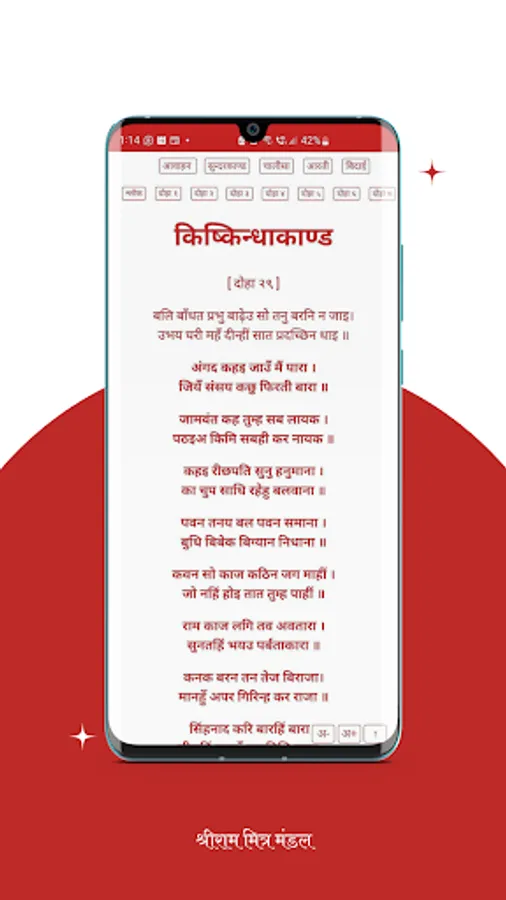 1:14
42%
आवाहन सुन्दरकाण्ड चालीसा आरती बिदाई
श्लोक दोहा १ दोहा २ दोहा ३ दोहा ४ दोहा ५ दोहा ६
किष्किन्धाकाण्ड
[ दोहा २९ ]
बलि बाँधत प्रभु बाढ़ेउ सो तनु बरनि न जाइ।
उभय घरी महँ दीन्हीं सात प्रदच्छिन धाइ ॥
अंगद कहइ जाउँ मैं पारा ।
जियँ संसय कछु फिरती बारा ॥
जामवंत कह तुम्ह सब लायक ।
पठइअ किमि सबही कर नायक ॥
कहइ रीछपति सुनु हनुमाना ।
का चुप साधि रहेहु बलवाना ॥
पवन तनय बल पवन समाना ।
बुधि बिबेक बिग्यान निधाना ॥
कवन सो काज कठिन जग माहीं ।
जो नहिं होइ तात तुम्ह पाहीं ॥
राम काज लगि तव अवतारा ।
सुनतहिं भयउ पर्बताकारा ॥
कनक बरन तन तेज बिराजा।
मानहुँ अपर गिरिन्ह कर राजा ॥
सिंहनाद करि बारहिं बारा
अ- अ+ ↑
श्रीराम मित्र मंडल